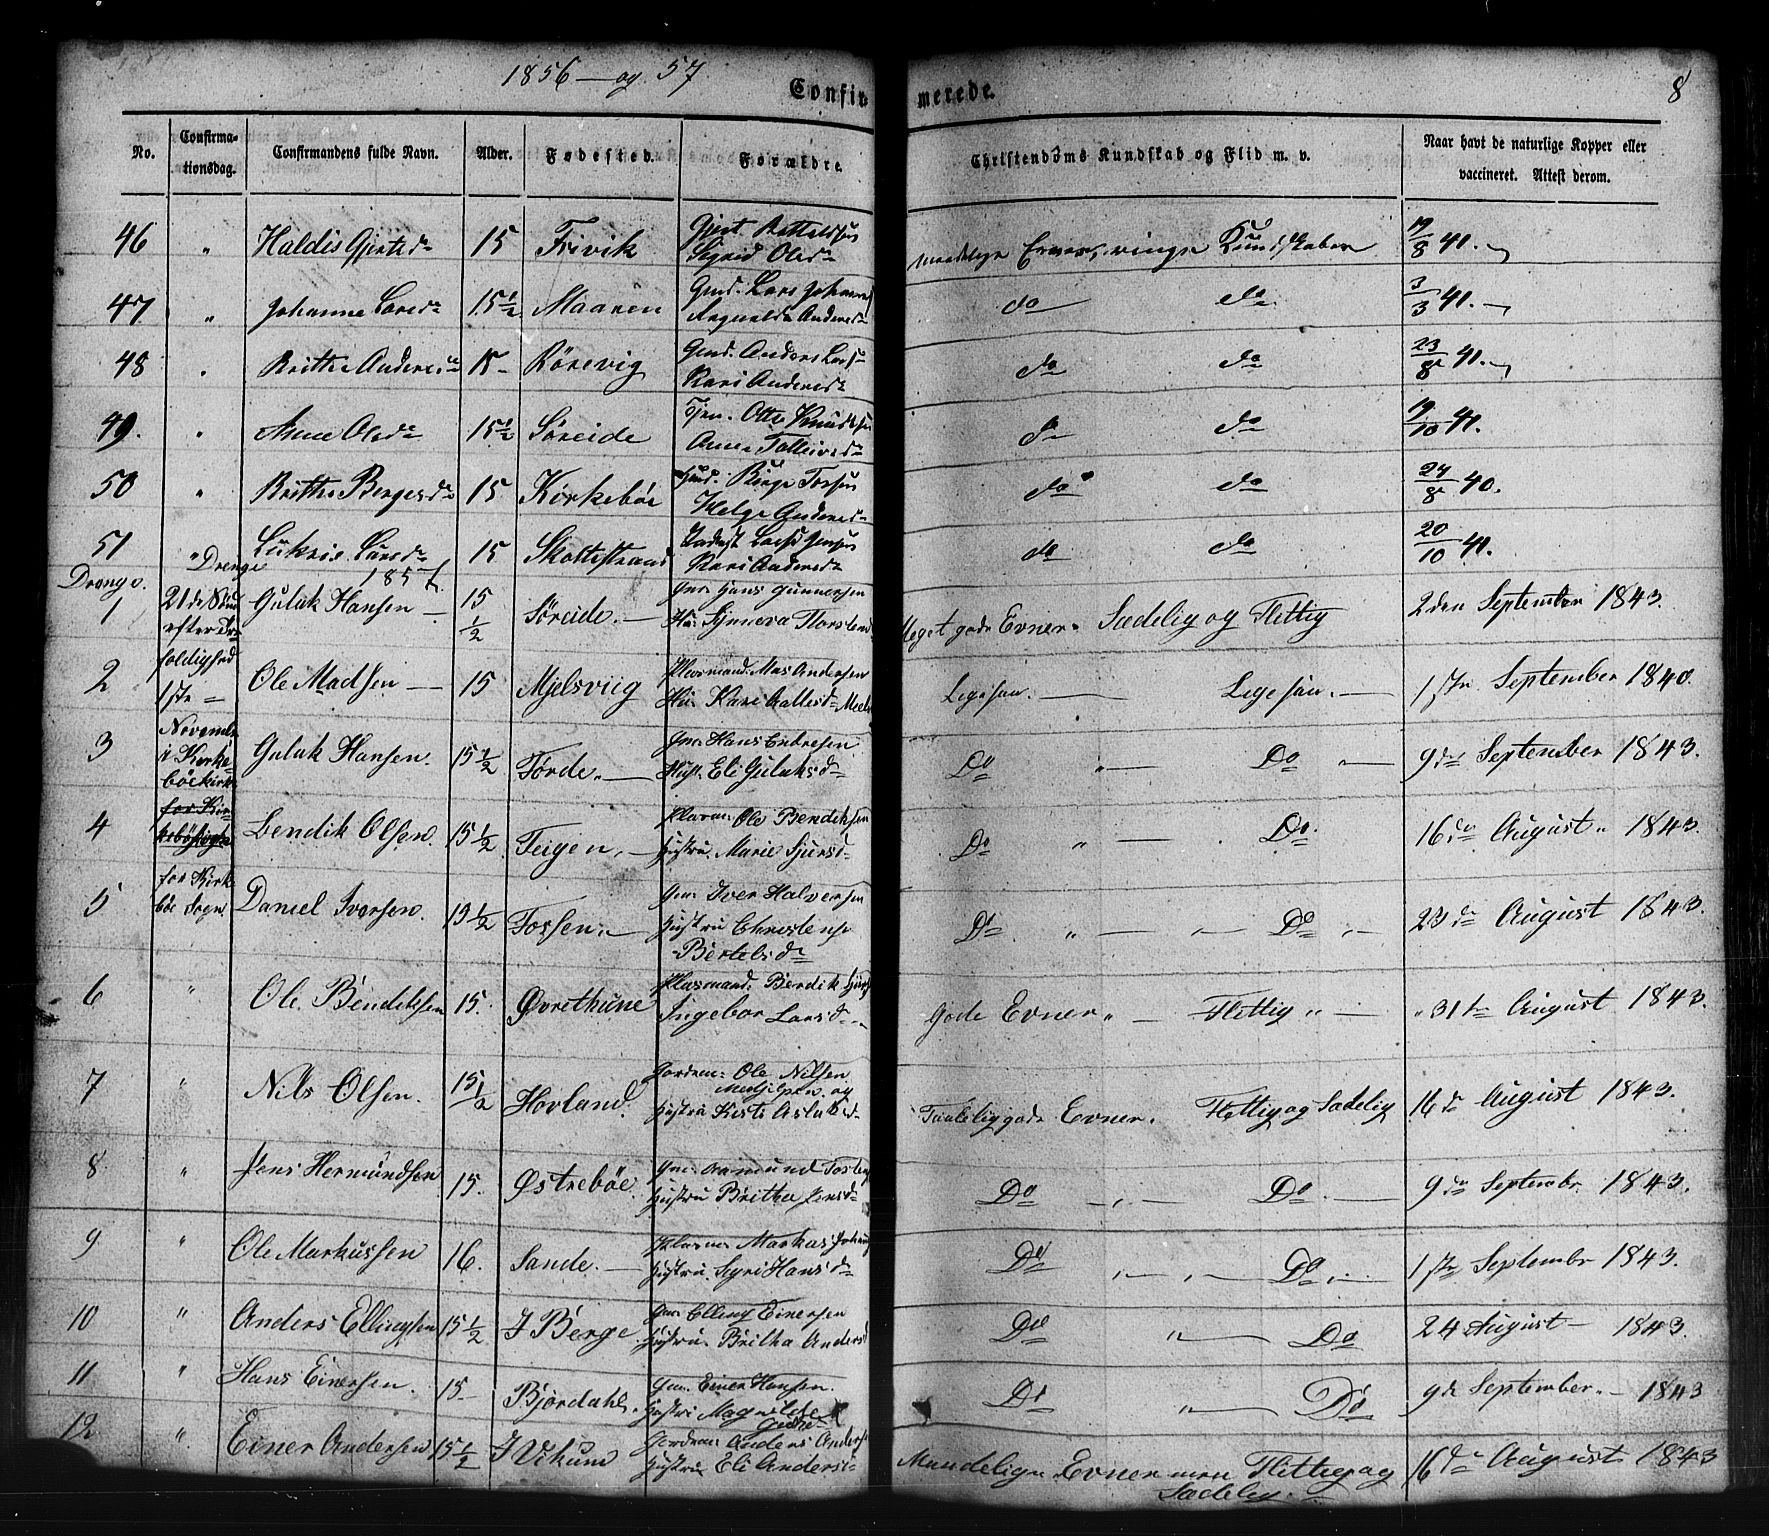 1856 — og 57
Confir- merede. 8
No. Confirma-tionsdag. Confirmandens fulde Navn. Alder. Fødested. Forældre. Christendoms Kundskab og Flid m. v. Naar havt de naturlige Kopper eller vaccineret. Attest derom.
46 " Haldis Gjertsd 15 Frivik Gjert
Sigrid Olsd maadelige Evner, ringe Kundskaber 19/8 41.
47 " Johanne Larsd 15½ Maaren Gmd. Lars Johannes
Ragnalda Andersd do do 3/3 41.
48 " Brithe Andersd 15 Rørevig Gmd. Anders Lars
Kari Andersd do do 23/8 41.
49. " Anne Olsd 15½ Søreide Tjen. Otte Knudsen
Anne do do 19/10 41.
50 " Brithe Bergesd 15 Kirkebøe Gmd. Børge
Helge Andersd do do 24/8 40.
51 " Larsd 15
Kari Andersd do do 20/10 41.
Drenge Drenge 1857
1 21de Sønd efter Tre- Gulak Hansen 15½ Søreide. Gmr Hans Gunnersen
Hu: Synneva Meget gode Evner. Sædelig og Flittig 2den September 1843.
2 foldighed 1ste Ole Madsen 15 Mjelsviig Plasmand. Mas Andersen
Hu: Kari Ligesaa. Ligesaa. 1ste September 1840.
3 November i Kirke-bøe kirke Gulak Hansen. 15½ Førde. Gmr Hans Endresen
Hust. Eli Gulaksd Do " Do 9de September 1843.
4 for Kir- Bendik Olsen 15½ Teigen. Plasm: Ole Bendiksen
Hustru. Marie Sjursd Do " Do. 16de August 1843.
5 for Kirk-bøe Sogn Daniel Iversen. 15½ Fossen. Gm: Iver Halvorsen
Hustru Christense
Bertelsd Do " " Do " 23de August 1843.
6 " Ole Bendiksen 15. Øvrethune Plasmand. Bendik
Ingebor Larsd Gode Evner " Flittig " 31te August 1843.
7 " Nils Olsen. 15½ Hovland. Gordm: Ole Nilsen
og
Hustru Aslaksd Taalelig gode Evner. Flittig og Sædelig 16de August 1843.
8 " Jens Hermundsen 15. Østrebøe. Gm:
Hustru Britha Jensd Do " Do 9de Septembr 1843.
9 " Ole Markussen 16. Sande. Plasm: Markus
Hustru. Sigri Hansd Do " " Do " 1ste Septembr 1843.
10 " Anders Ellingsen 15½ I Berge Gm: Elling Einersen
Hustru Britha Andersd Do " Do 24 August 1843.
11 " Hans Einersen. 15 Bjørdahl. Gm: Einer Hansen.
Hustru Magnilde Do " Do 9de September. 1843
12 " Einer Andersen 15½ I Vikum Gordm: Anders Anders
Hustru Eli Andersd Maadelige Evner men Flittig og
Sædelig. 16de August 1843